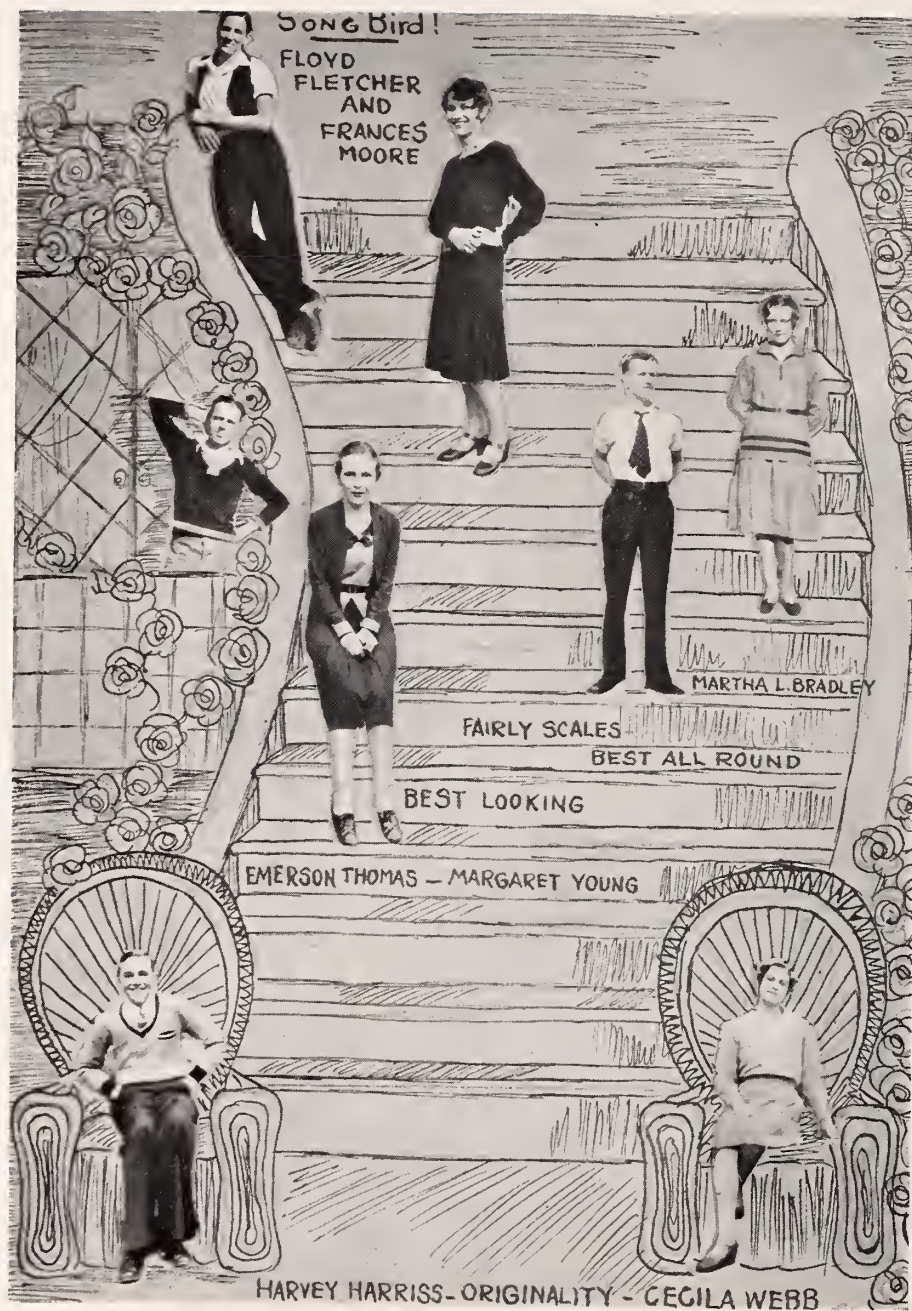 SONG Bird!
FLOYD
FLETCHER
AND
FRANCES
MOORE
MARTHA L. BRADLEY
FAIRLY SCALES
BEST ALL ROUND
BEST LOOKING
EMERSON THOMAS - MARGARET YOUNG
HARVEY HARRISS - ORIGINALITY - CECILA WEBB